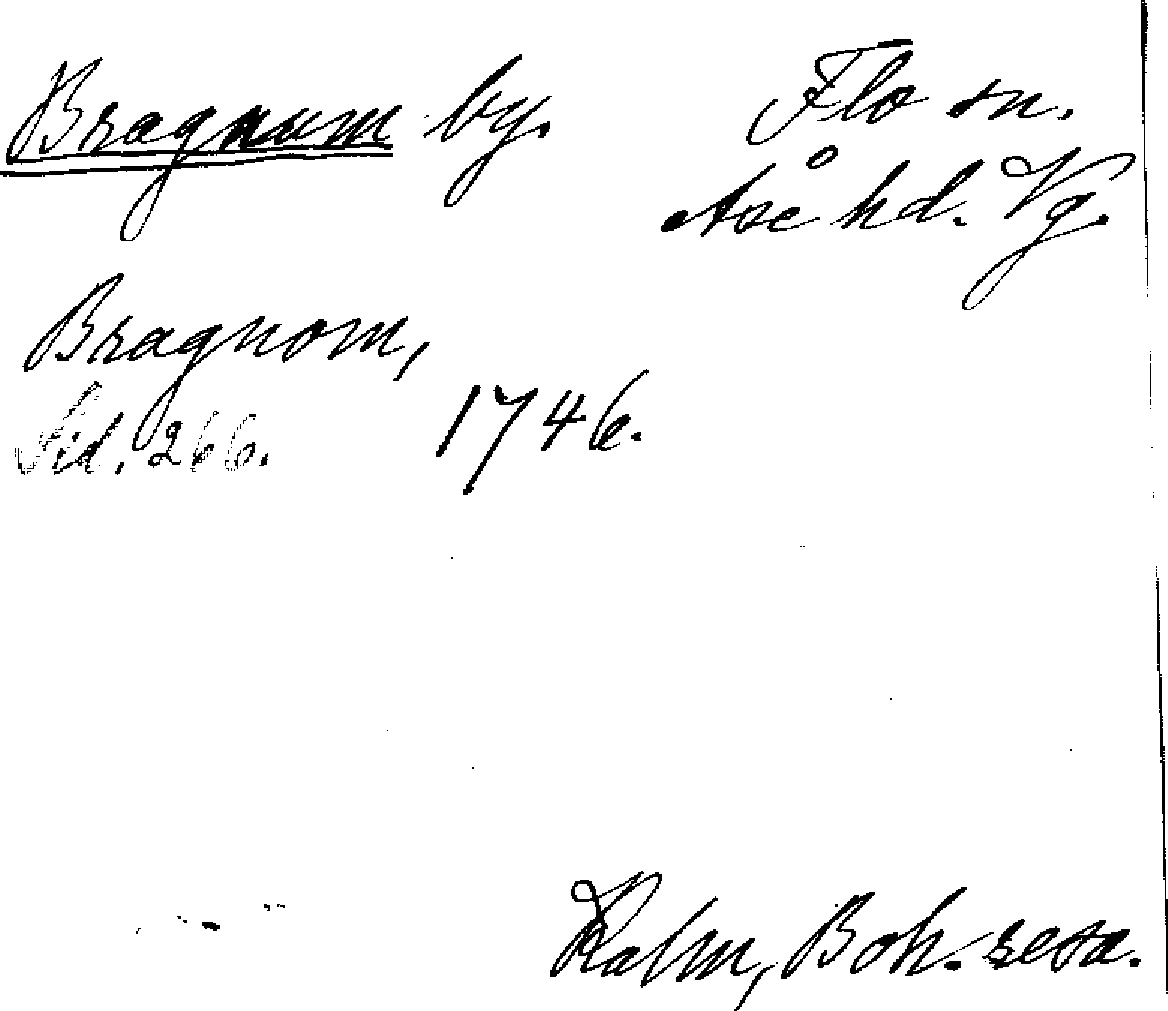 Bragnum by.
Flo sn.
Åse hd. Vg.
Bragnom,
Sid. 266. 1746.
Kalm, Boh. resa.